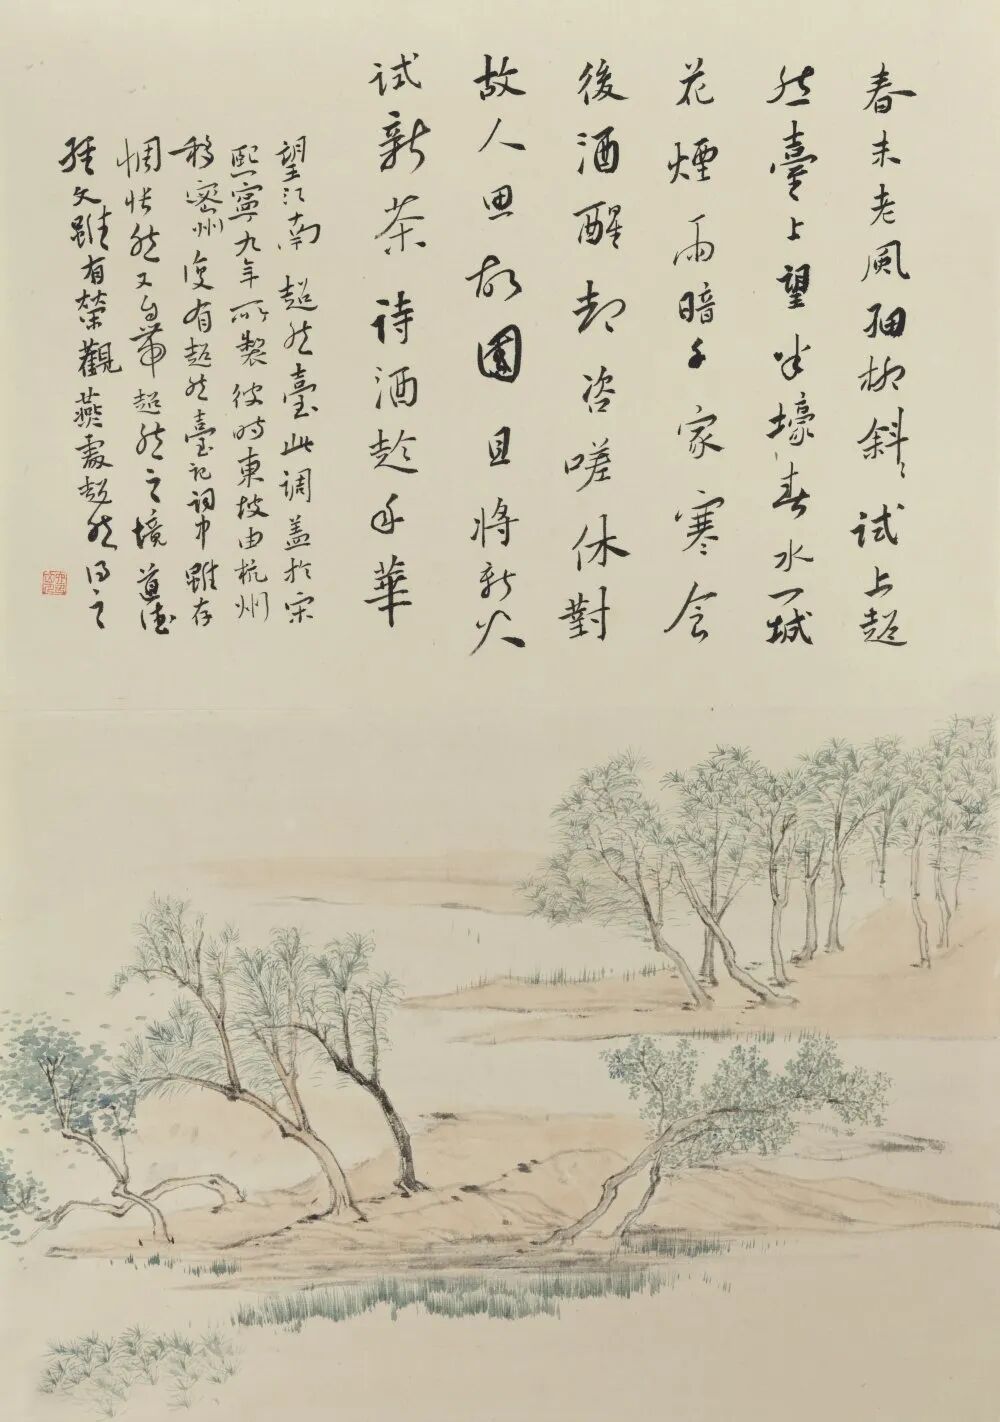 春未老風細柳斜〻試上超
然臺上望半壕春水一城
花煙雨暗千家寒食
後酒醒却咨嗟休對
故人思故園且將新火
試新茶詩酒趁年華
望江南 超然臺此調蓋於宋
熙寧九年所製彼時東坡由杭州
移密州復有超然臺記詞中雖存
惆悵然又自帶超然之境道德
經文雖有榮觀燕處超然得之